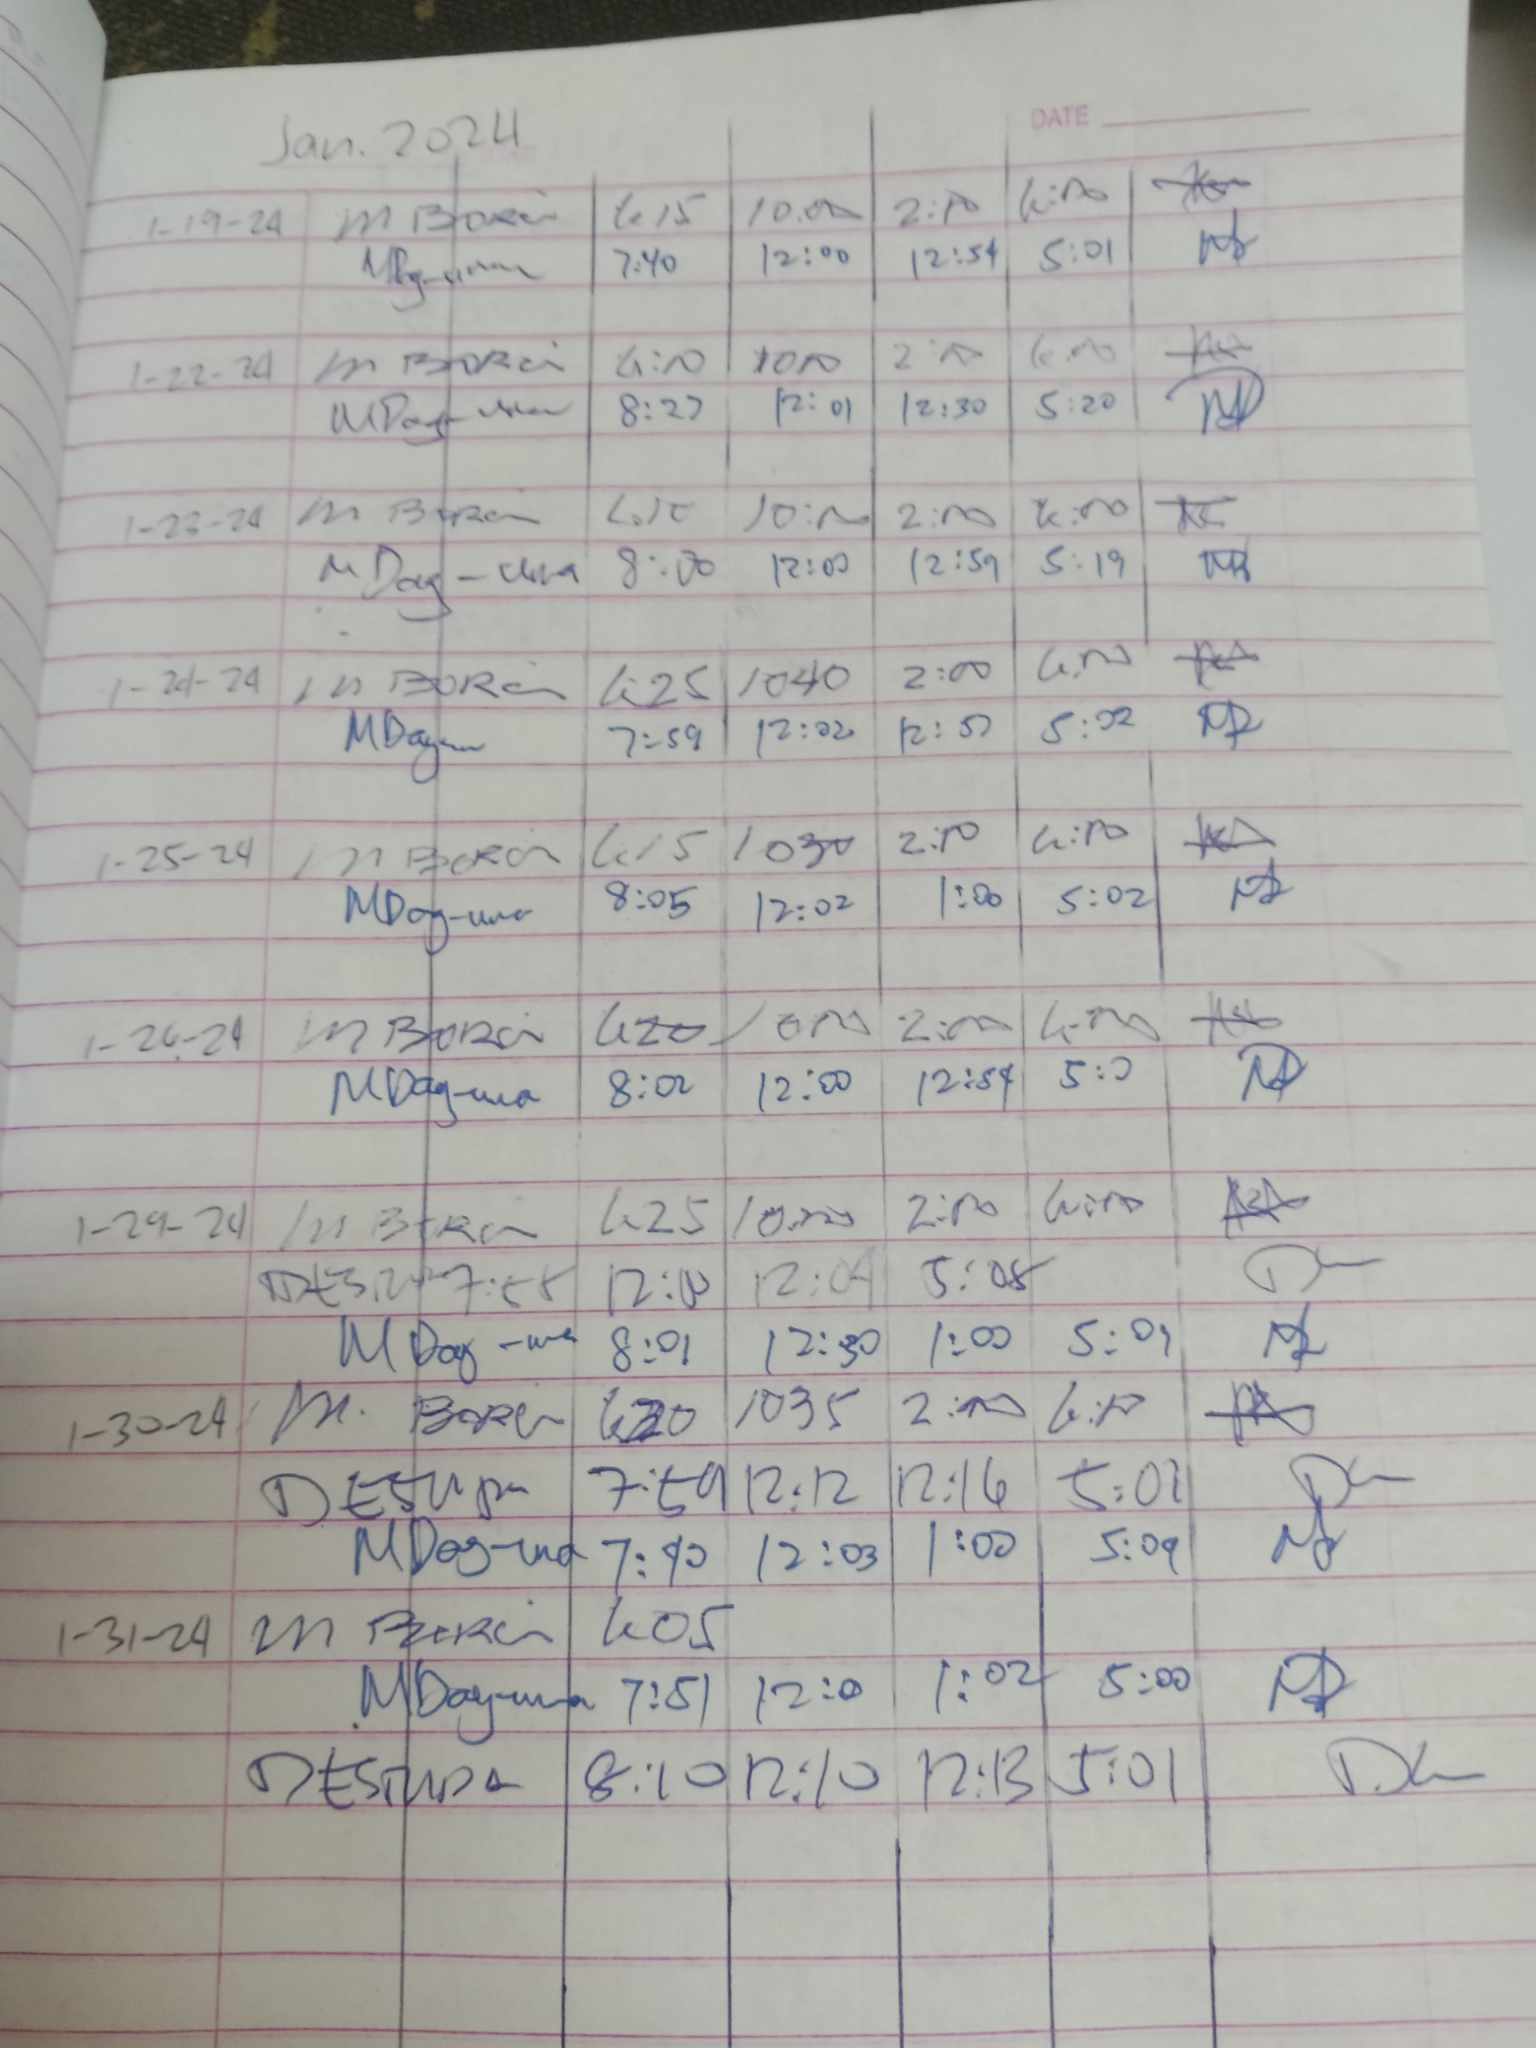 Jan. 2024
DATE
1-19-24 M Borci 6:15 10:00 2:00 6:00
7:40 12:00 12:54 5:01
1-22-24 M Borci 6:10 1000 2:00 6:00
MDag-una 8:27 12:01 12:30 5:20
1-23-24 M Borci 6:10 10:00 2:00 6:00
MDag-una 8:00 12:00 12:59 5:19
1-24-24 M Borci 6:25 1040 2:00 6:00
MDag-una 7:59 12:02 5:02
1-25-24 M Borci 6:15 1030 2:00 6:00
MDag-una 8:05 12:02 1:00 5:02
1-26-24 M Borci 6:20 1000 2:00 6:00
MDag-una 8:02 12:00 12:54
1-29-24 M Borci 6:25 10:00 2:00 6:00
7:58 12:10 12:04 5:08
MDag-una 8:01 12:30 1:00 5:09
1-30-24 M. Borci 1035 2:00 6:00
DESTUPA 7:59 12:12 12:16 5:02
MDag-una 7:40 12:03 1:00 5:09
1-31-24 M Borci 6:05
MDag-una 7:51 12:0 1:02 5:00
DESTUPA 8:10 12:10 12:13 5:01